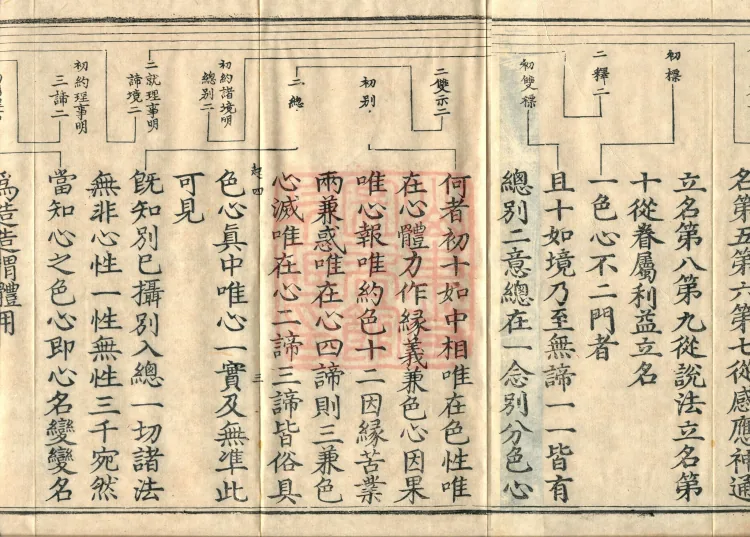 初標
二釋二
初雙標
二雙示二
初別
二總
初約諸境明
總別二
二就理事明
諦境二
初約理事明
三諦二
名第五第六第七從感應神通
立名第八第九從說法立名第
十從眷屬利益立名
一色心不二門者
且十如境乃至無諦一一皆有
總別二意總在一念別分色心
何者初十如中相唯在色性唯
在心體力作緣義兼色心因果
唯心報唯約色十二因緣苦業
兩兼惑唯在心四諦則三兼色
心滅唯在心二諦三諦皆俗具
三
色心眞中唯心一實及無準此
可見
旣知別已攝別入總一切諸法
無非心性一性無性三千宛然
當知心之色心即心名變變名
爲造造謂體用